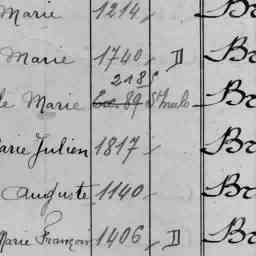 Marie 1214 Br
Marie 1740 D Br
218
le Marie 89 St Malo Br
arie Julien 1817 Br
Auguste 1140 Br
Marie François 1406 D Br